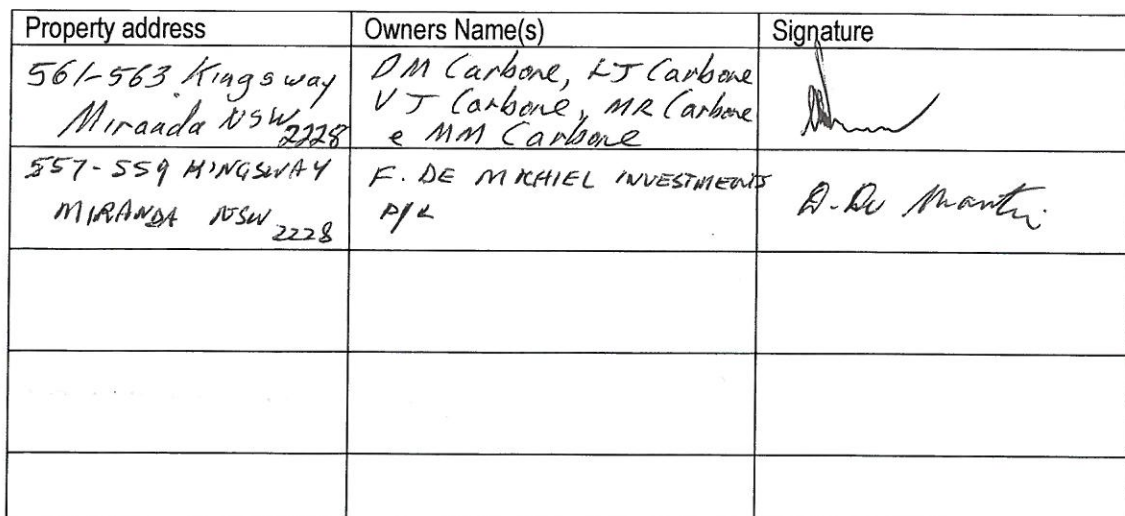 Property address
Owners Name(s)
Signature
561-563 Kingsway
Miranda NSW
2228
DM Carbone, LJ Carbone
VJ Carbone, MR Carbone
e MM Carbone
557-559 KINGSWAY
MIRANDA NSW
2228
F. DE MICHIEL INVESTMENTS
P/L
D. De Martin